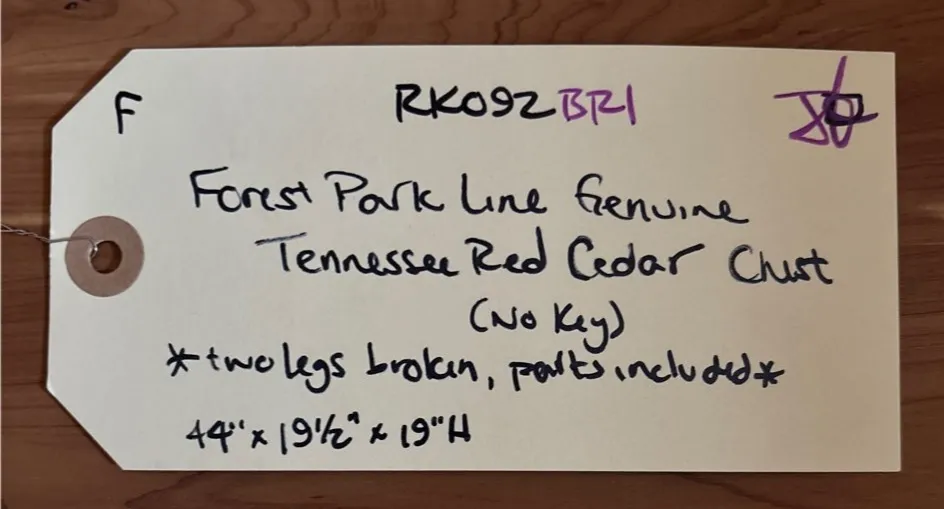 F
RK092BR1
Forest Park Line Genuine
Tennessee Red Cedar Chest
(No Key)
*two legs broken, parts included*
44" x 19½" x 19"H